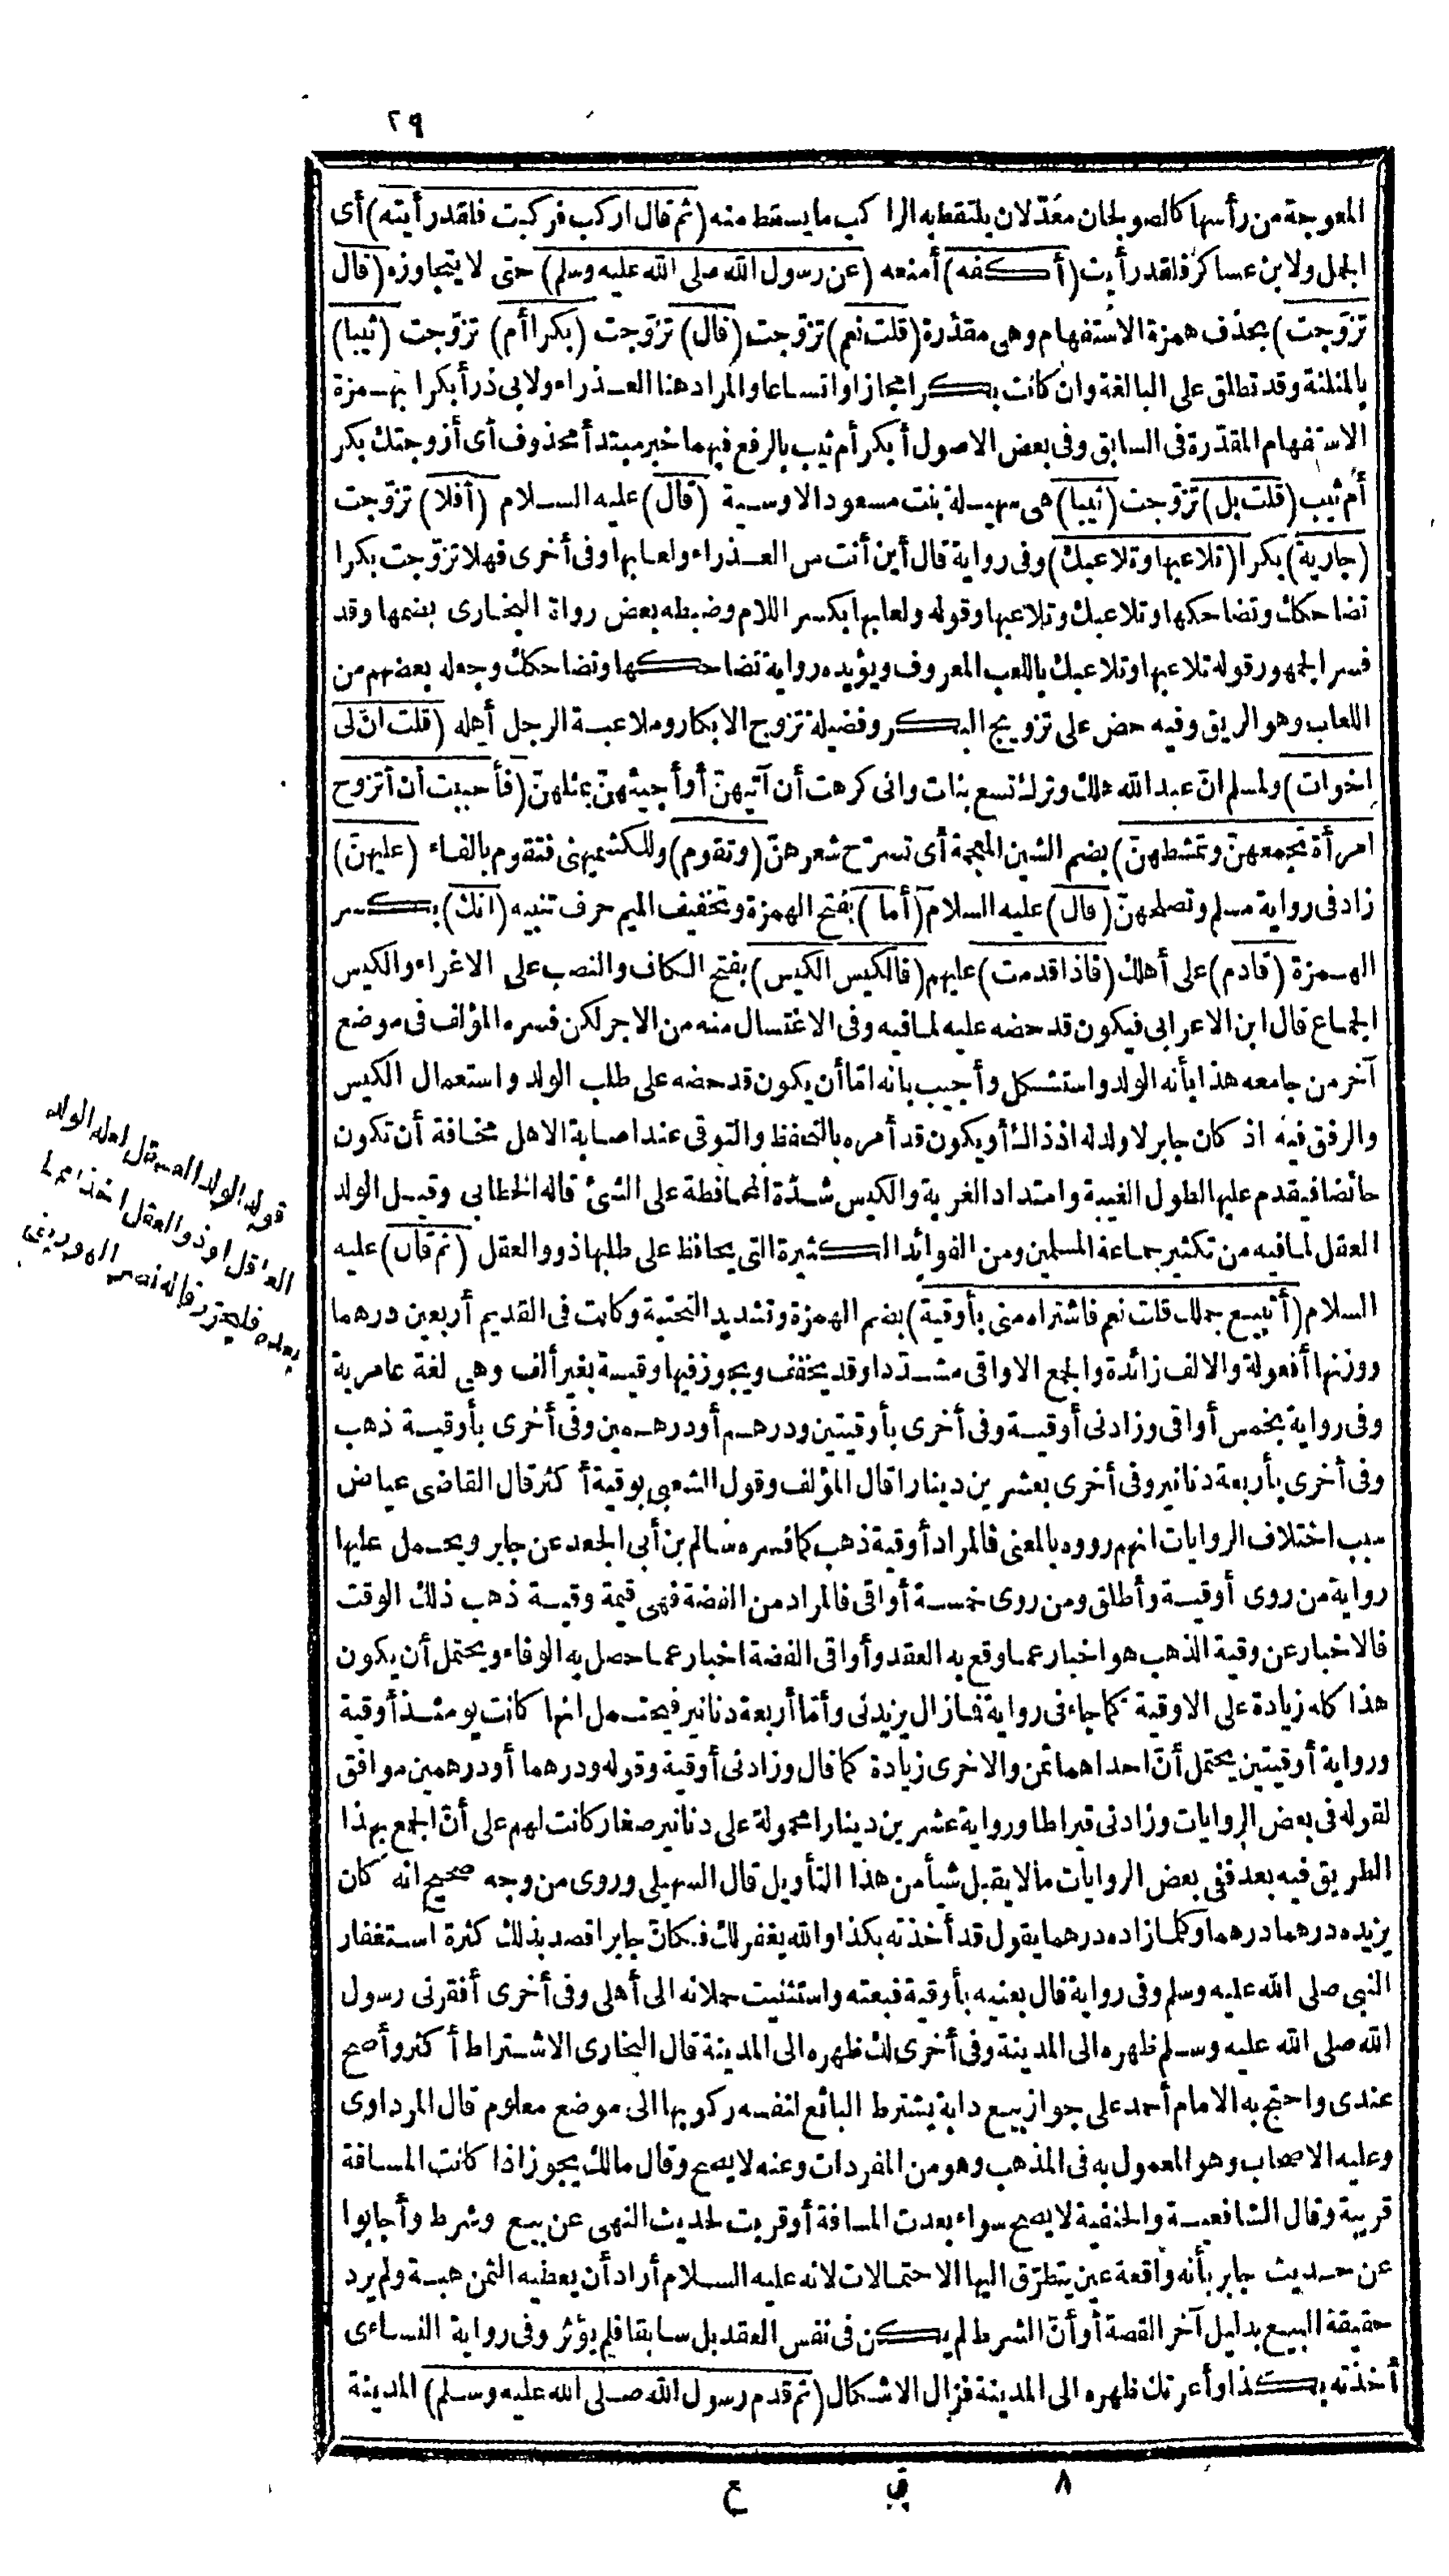 ٢٩
المعوجة من رأسها كالصولجان معدّ لان يلتقط به الراكب ما يسقط منه (ثم قال اركب فركبت فلقد رأيته) أى
الجمل ولابن عساكر فلقد رأيت (أكفه) أمنعه (عن رسول الله صلى الله عليه وسلم) حتى لا يتجاوزه (قال
تزوّجت) بحذف همزة الاستفهام وهى مقدّرة (قلت نعم) تزوّجت (قال) تزوّجت (بكرا أم) تزوّجت (ثيبا)
بالمثلثة وقد تطلق على البالغة وان كانت بكرا مجازا واتساعا والمراد هنا العذراء ولابى ذر أبكرا بهمزة
الاستفهام المقدّرة فى السابق وفى بعض الاصول أبكر أم ثيب بالرفع فيهما خبر مبتدأ محذوف أى أزوجتك بكر
أم ثيب (قلت بل) تزوّجت (ثيبا) هى سهيلة بنت مسعود الاوسية (قال) عليه السلام (أفلا) تزوّجت
(جارية) بكرا (تلاعبها وتلاعبك) وفى رواية قال أين أنت من العذراء ولعابها وفى أخرى فهلا تزوّجت بكرا
تضاحكك وتضاحكها وتلاعبك وتلاعبها وقوله ولعابها بكسر اللام وضبطه بعض رواة البخارى بضمها وقد
فسر الجمهور قوله تلاعبها وتلاعبك باللعب المعروف ويؤيده رواية تضاحكها وتضاحكك وجعله بعضهم من
اللعاب وهو الريق وفيه حض على تزويج البكر وفضيلة تزوج الابكار وملاعبة الرجل أهله (قلت انّ لى
اخوات) ولمسلم انّ عبد الله هلك وترك تسع بنات وانى كرهت أن آتيهنّ أو أجيئهنّ بمثلهنّ (فأحببت أن أتزوّج
امرأة تجمعهنّ وتمشطهنّ) بضم الشين المعجمة أى تسرّح شعرهنّ (وتقوم) وللكشميهنى فتقوم بالفاء (عليهنّ)
زاد فى رواية مسلم وتصلحهنّ (قال) عليه السلام (أما) بفتح الهمزة وتخفيف الميم حرف تنبيه (انك) بكسر
الهمزة (قادم) على أهلك (فاذا قدمت) عليهم (فالكيس الكيس) بفتح الكاف والنصب على الاغراء والكيس
الجماع قال ابن الاعرابى فيكون قد حضه عليه لما فيه وفى الاغتسال منه من الاجر لكن فسره المؤلف فى موضع
آخر من جامعه هذا بأنه الولد واستشكل وأجيب بانه امّا أن يكون قد حضه على طلب الولد واستعمال الكيس
والرفق فيه اذ كان جابر لا ولد له اذ ذاك أو يكون قد أمره بالتحفظ والتوقى عند اصابة الاهل مخافة أن تكون
حائضا فيقدم عليها لطول الغيبة وامتداد الغربة والكيس شدّة المحافظة على الشئ قاله الخطابى وقيل الولد
العقل لما فيه من تكثير جماعة المسلمين ومن الفوائد الكثيرة التى يحافظ على طلبها ذوو العقل (ثم قال) عليه
السلام (أتبيع جملك قلت نعم فاشتراه منى بأوقية) بضم الهمزة وتشديد التحتية وكانت فى القديم أربعين درهما
ووزنها أفعولة والالف زائدة والجمع الاواقى مشدّدا وقد يخفف ويجوز فيها وقية بغير ألف وهى لغة عامرية
وفى رواية بخمس أواقى وزادنى أوقية وفى أخرى بأوقيتين ودرهم أو درهمين وفى أخرى بأوقية ذهب
وفى أخرى بأربعة دنانير وفى أخرى بعشرين دينارا قال المؤلف وقول الشعبى بوقية أكثر قال القاضى عياض
سبب اختلاف الروايات انهم رووه بالمعنى فالمراد أوقية ذهب كما فسره سالم بن أبى الجعد عن جابر ويحمل عليها
رواية من روى أوقية وأطلق ومن روى خمسة أواقى فالمراد من الفضة فهى قيمة وقية ذهب ذلك الوقت
فالاخبار عن وقية الذهب هو اخبار عما وقع به العقد وأواقى الفضة اخبار عما حصل به الوفاء ويحتمل أن يكون
هذا كله زيادة على الاوقية كما جاء فى رواية فما زال يزيدنى وأمّا أربعة دنانير فيحتمل انها كانت يومئذ أوقية
ورواية أوقيتين يحتمل أنّ احداهما ثمن والاخرى زيادة كما قال وزادنى أوقية وقوله ودرهما أو درهمين موافق
لقوله فى بعض الروايات وزادنى قيراطا ورواية عشرين دينارا محمولة على دنانير صغار كانت لهم على أنّ الجمع بهذا
الطريق فيه بعد ففى بعض الروايات ما لا يقبل شيأ من هذا التأويل قال السهيلى وروى من وجه صحيح انه كان
يزيده درهما درهما وكلما زاده درهما يقول قد أخذته بكذا والله يغفر لك فكانّ جابرا قصد بذلك كثرة استغفار
النبى صلى الله عليه وسلم وفى رواية قال بعنيه بأوقية فبعته واستثنيت حملانه الى أهلى وفى أخرى أفقرنى رسول
الله صلى الله عليه وسلم ظهره الى المدينة وفى أخرى لك ظهره الى المدينة قال البخارى الاشتراط أكثر وأصح
عندى واحتج به الامام أحمد على جواز بيع دابة يشترط البائع لنفسه ركوبها الى موضع معلوم قال المرداوى
وعليه الاصحاب وهو المعمول به فى المذهب وهو من المفردات وعنه لا يصح وقال مالك يجوز اذا كانت المسافة
قريبة وقال الشافعية والحنفية لا يصح سواء بعدت المسافة أو قربت لحديث النهى عن بيع وشرط وأجابوا
عن حديث جابر بأنه واقعة عين يتطرّق اليها الاحتمالات لانه عليه السلام أراد أن يعطيه الثمن هبة ولم يرد
حقيقة البيع بدليل آخر القصة أو أنّ الشرط لم يكن فى نفس العقد بل سابقا فلم يؤثر وفى رواية النساءى
أخذته بكذا وأعرتك ظهره الى المدينة فزال الاشكال (ثم قدم رسول الله صلى الله عليه وسلم) المدينة
قوله الولد العقل لعله الولد
العاقل او ذو العقل اخذا مما
بعده فليحرر فانه نصر الهورينى
٨ ق ع